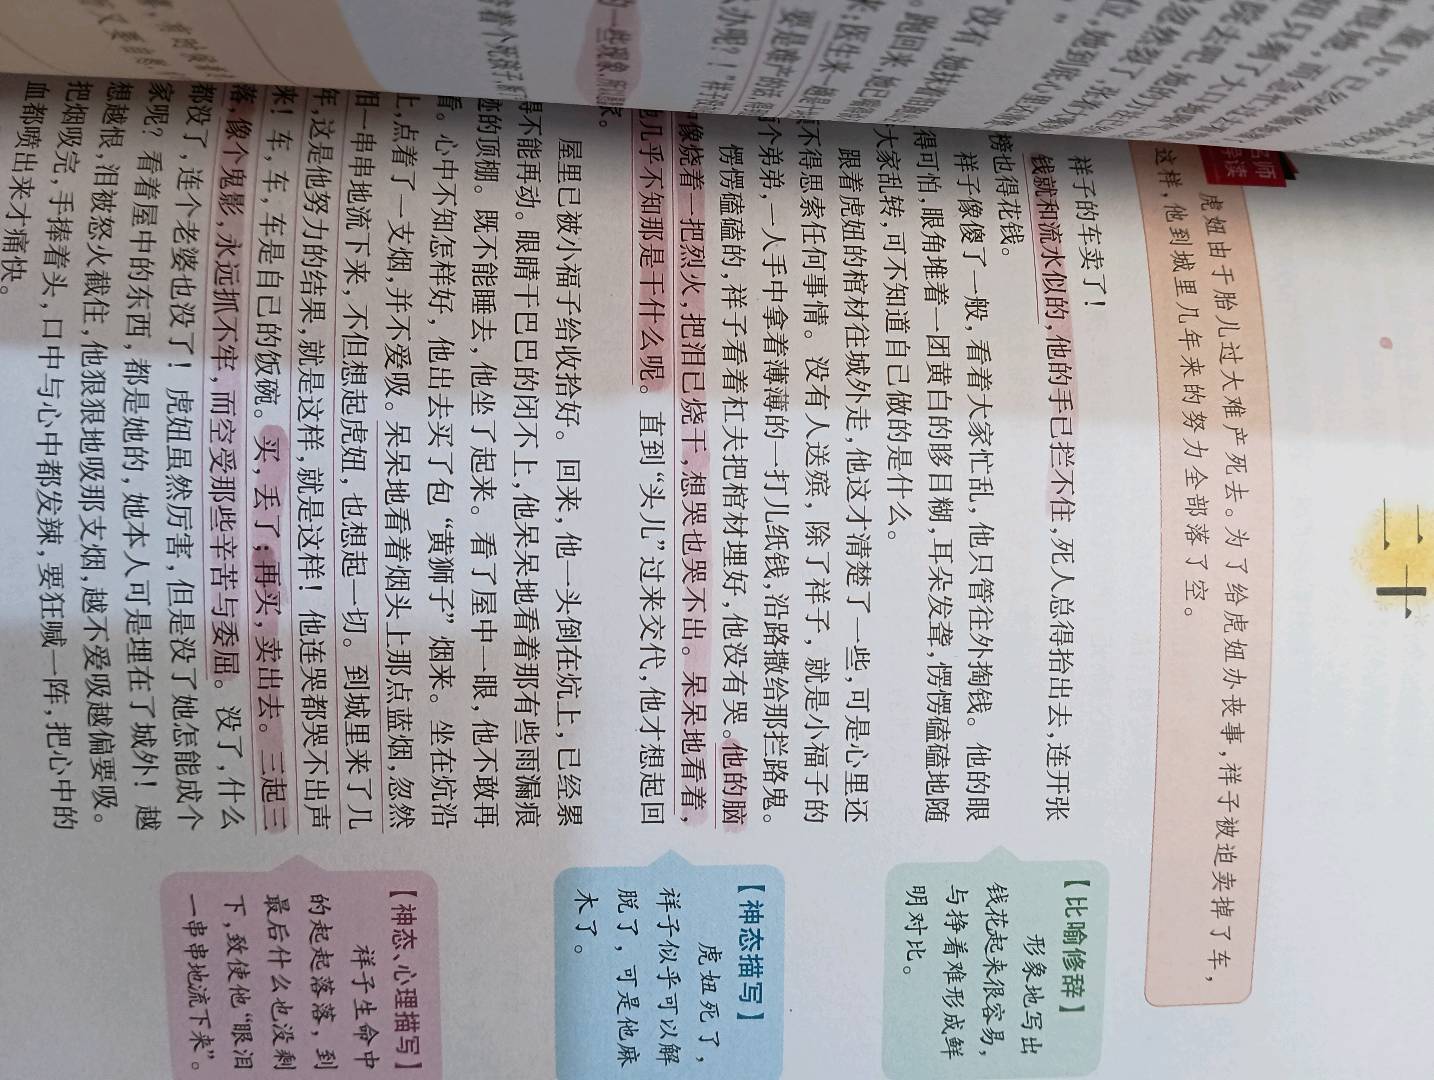 二十
名师导读
虎妞由于胎儿过大难产死去。为了给虎妞办丧事，祥子被迫卖掉了车，
这样，他到城里几年来的努力全部落了空。
祥子的车卖了！
钱就和流水似的，他的手已拦不住，死人总得抬出去，连开张
榜也得花钱。
祥子像傻了一般，看着大家忙乱，他只管往外掏钱。他的眼
得可怕，眼角堆着一团黄白的眵目糊，耳朵发聋，愣愣磕磕地随
大家乱转，可不知道自己做的是什么。
跟着虎妞的棺材往城外走，他这才清楚了一些，可是心里还
不得思索任何事情。没有人送殡，除了祥子，就是小福子的
个弟弟，一人手中拿着薄薄的一打儿纸钱，沿路撒给那拦路鬼。
愣愣磕磕的，祥子看着杠夫把棺材埋好，他没有哭。他的脑
像烧着一把烈火，把泪已烧干，想哭也哭不出。呆呆地看着，
他几乎不知那是干什么呢。直到“头儿”过来交代，他才想起回
家。
屋里已被小福子给收拾好。回来，他一头倒在炕上，已经累
得不能再动。眼睛干巴巴的闭不上，他呆呆地看着那有些雨漏痕
迹的顶棚。既不能睡去，他坐了起来。看了屋中一眼，他不敢再
看。心中不知怎样好，他出去买了包“黄狮子”烟来。坐在炕沿
上，点着了一支烟，并不爱吸。呆呆地看着烟头上那点蓝烟，忽然
泪一串串地流下来，不但想起虎妞，也想起一切。到城里来了几
年，这是他努力的结果，就是这样，就是这样！他连哭都哭不出声
来！车，车，车是自己的饭碗。买，丢了；再买，卖出去。三起三
落，像个鬼影，永远抓不牢，而空受那些辛苦与委屈。没了，什么
都没了，连个老婆也没了！虎妞虽然厉害，但是没了她怎能成个
家呢？看着屋中的东西，都是她的，她本人可是埋在了城外！越
想越恨，泪被怒火截住，他狠狠地吸那支烟，越不爱吸越偏要吸。
把烟吸完，手捧着头，口中与心中都发辣，要狂喊一阵，把心中的
血都喷出来才痛快。
【比喻修辞】
形象地写出
钱花起来很容易，
与挣着难形成鲜
明对比。
【神态描写】
虎妞死了，
祥子似乎可以解
脱了，可是他麻
木了。
【神态、心理描写】
祥子生命中
的起起落落，到
最后什么也没剩
下，致使他“眼泪
一串串地流下来”。